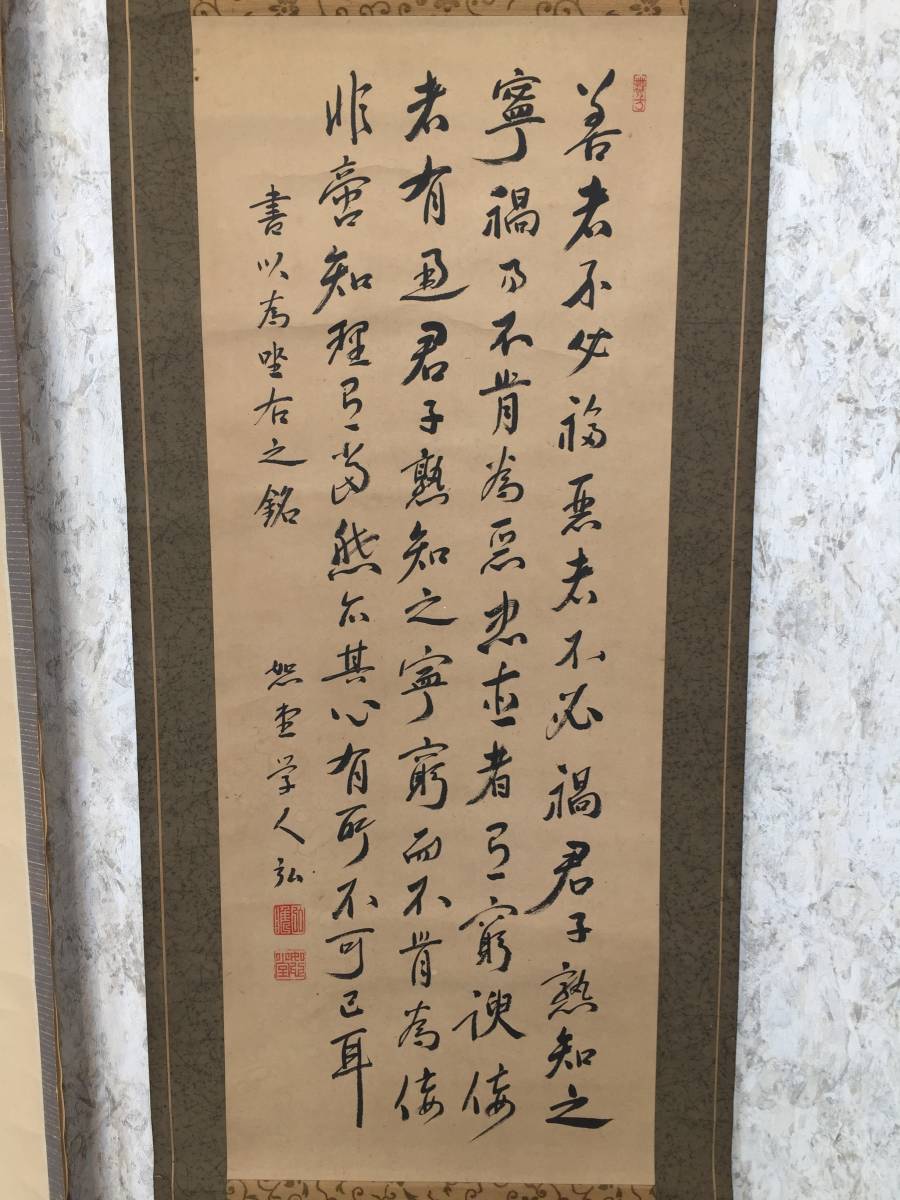 善者不必福悪者不必禍君子熟知之
寧禍而不肯為惡忠直者有窮諛佞
者有通君子熟知之寧窮而不肯為佞
非啻知理有當然亦其心有所不可已耳
書以為坐右之銘
恕堂学人弘